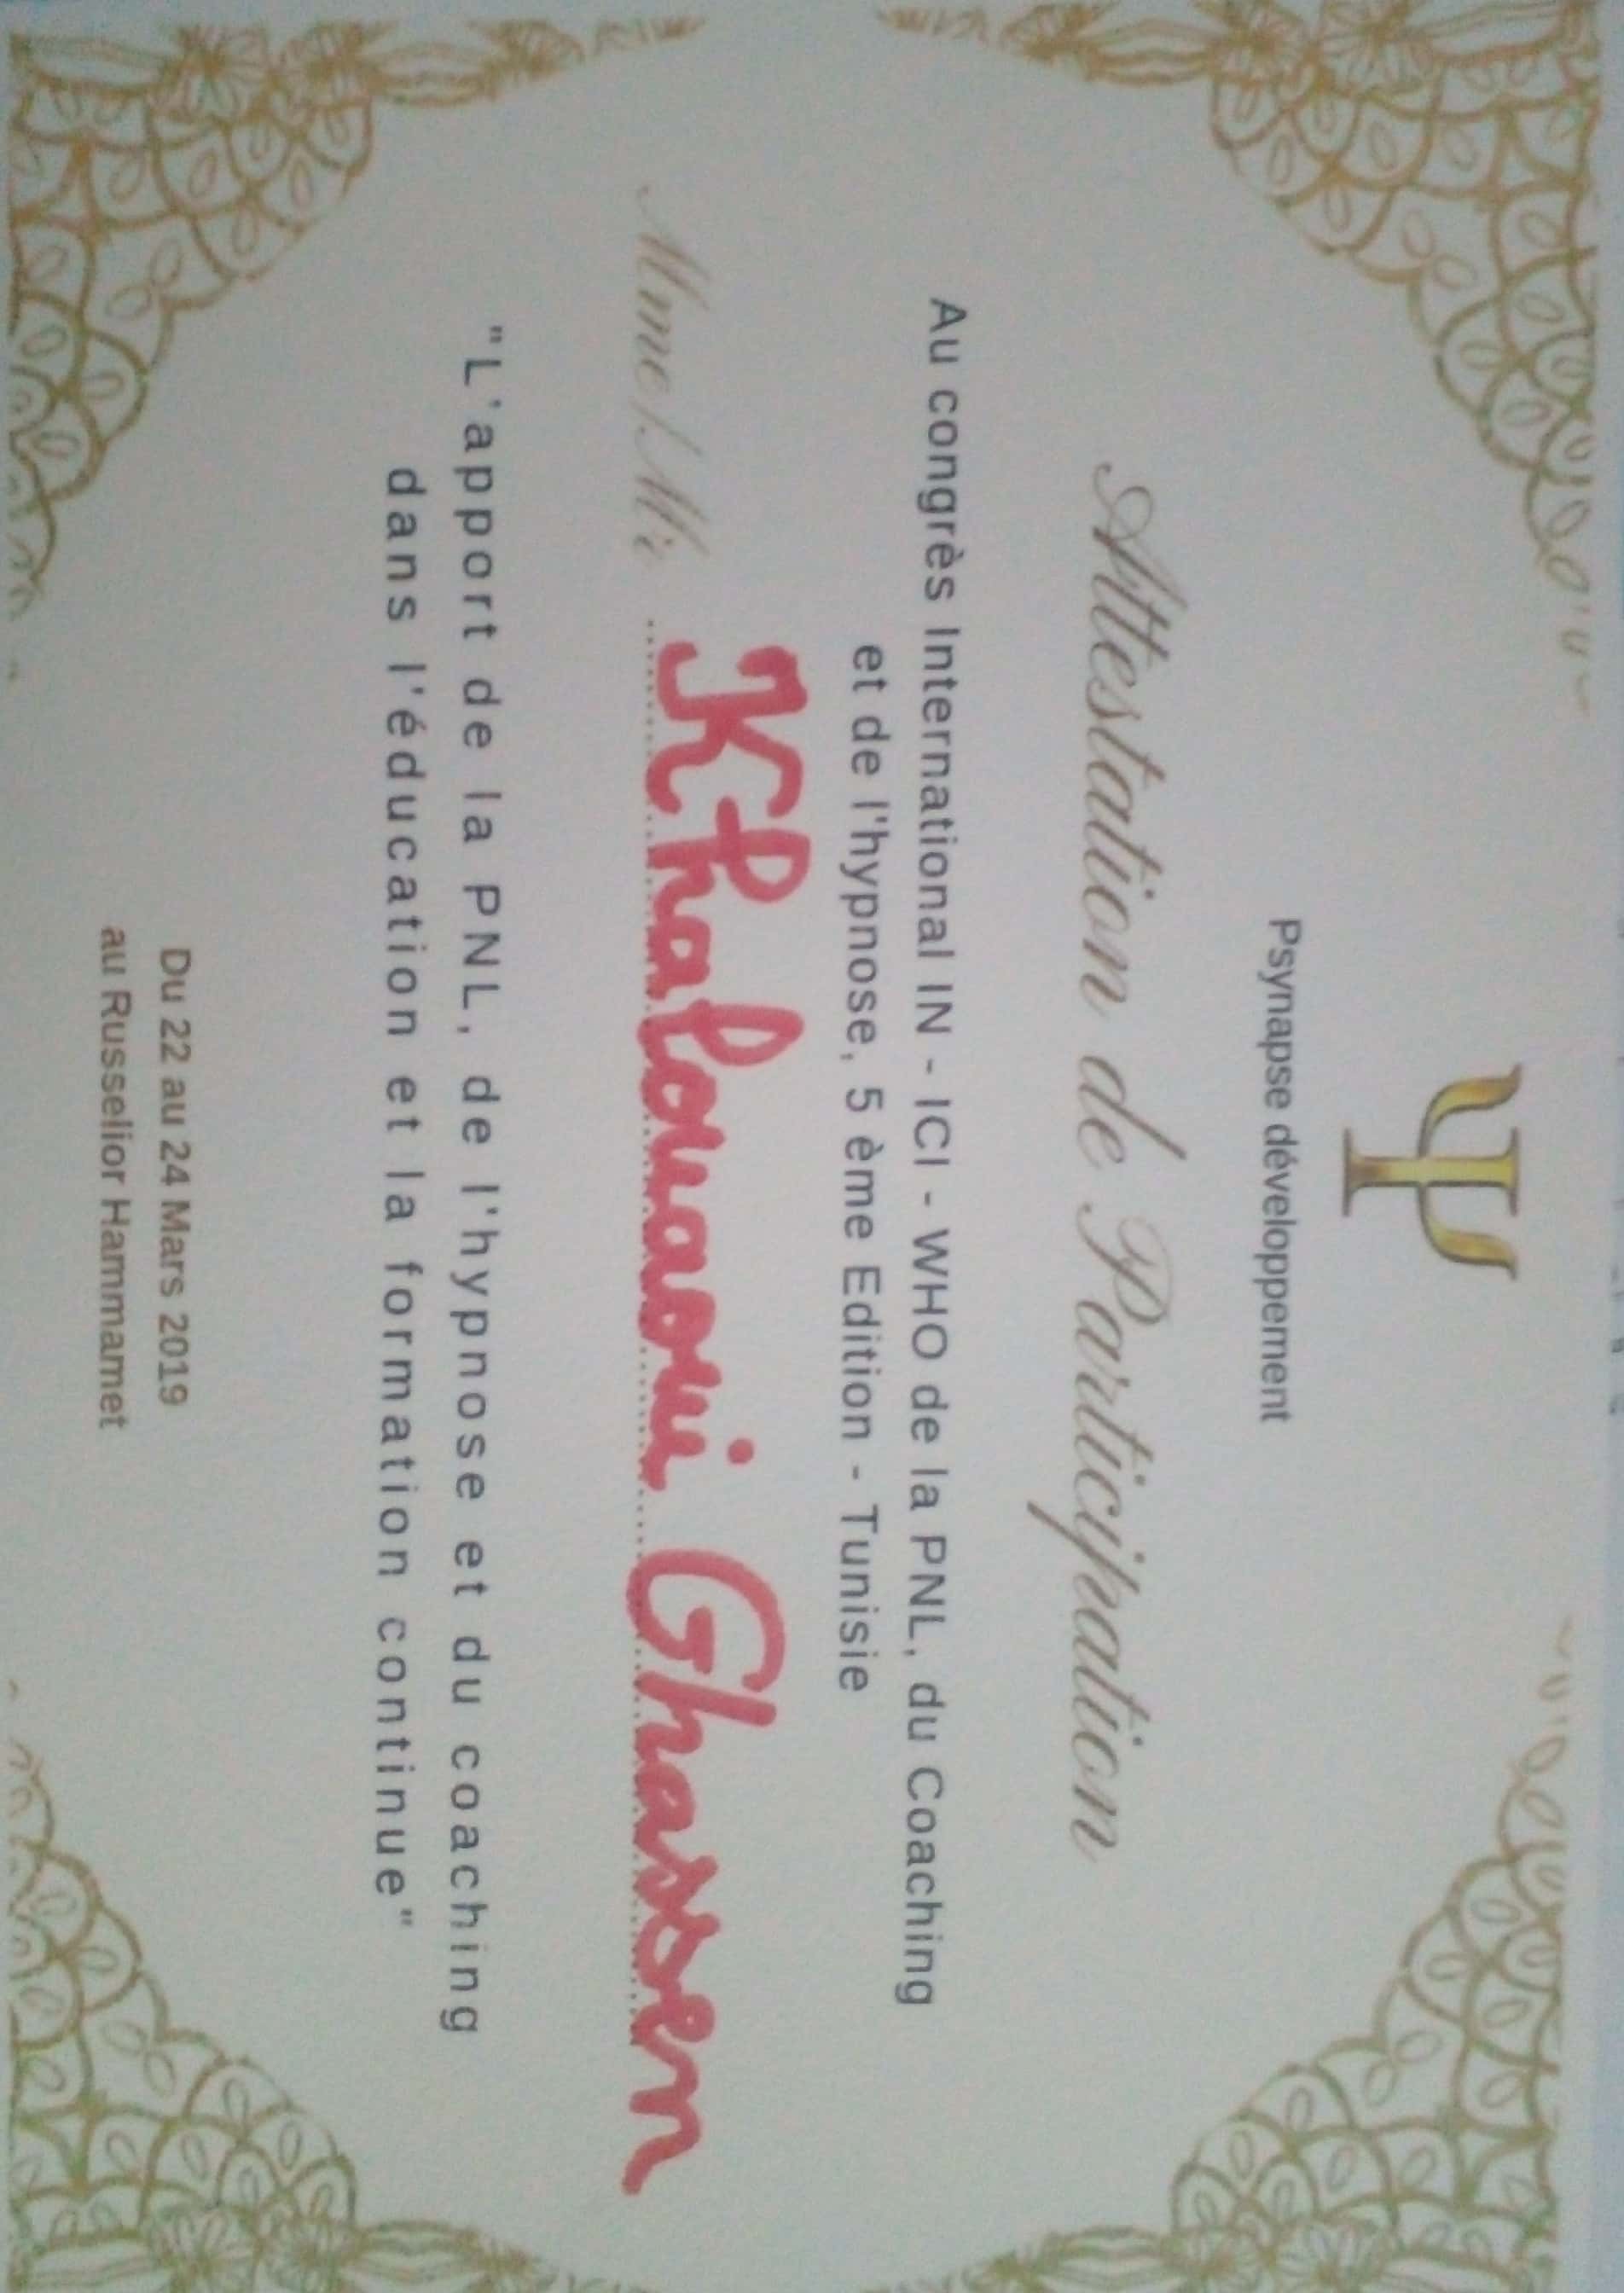 Ψ
Psynapse développement
Attestation de Participation
Au congrès International IN - ICI - WHO de la PNL, du Coaching
et de l'hypnose, 5 ème Edition - Tunisie
Mme/Mr Khalouaoui Ghassen
"L'apport de la PNL, de l'hypnose et du coaching
dans l'éducation et la formation continue"
Du 22 au 24 Mars 2019
au Russelior Hammamet